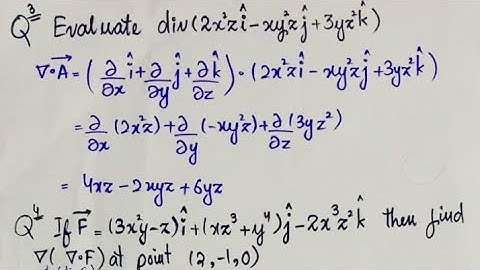 Q³ Evaluate div(2x²z î - xy²z ĵ + 3yz² k̂)
∇∘A⃗ = (∂/∂x î + ∂/∂y ĵ + ∂/∂z k̂) • (2x²z î - xy²z ĵ + 3yz² k̂)
= ∂/∂x (2x²z) + ∂/∂y (-xy²z) + ∂/∂z (3yz²)
= 4xz - 2xyz + 6yz
Q⁴ If F⃗ = (3x²y - z) î + (xz³ + y⁴) ĵ - 2x³z² k̂ then find
∇(∇∘F) at point (2, -1, 0)